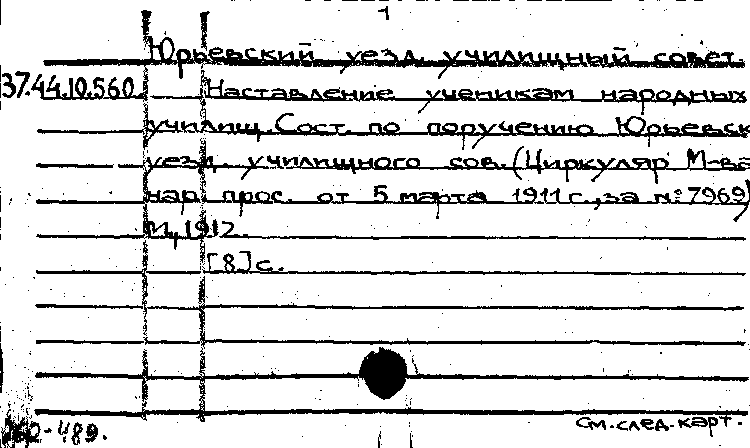 1
Юрьевский уезд. училищный совет.
37.44.10.560. Наставление ученикам народных
училищ. Сост. по поручению Юрьевск
уезд. училищного сов. (Циркуляр М-ва
нар. прос. от 5 марта 1911 г., за №7969)
М., 1912.
[8] с.
См. след. карт.
-489.